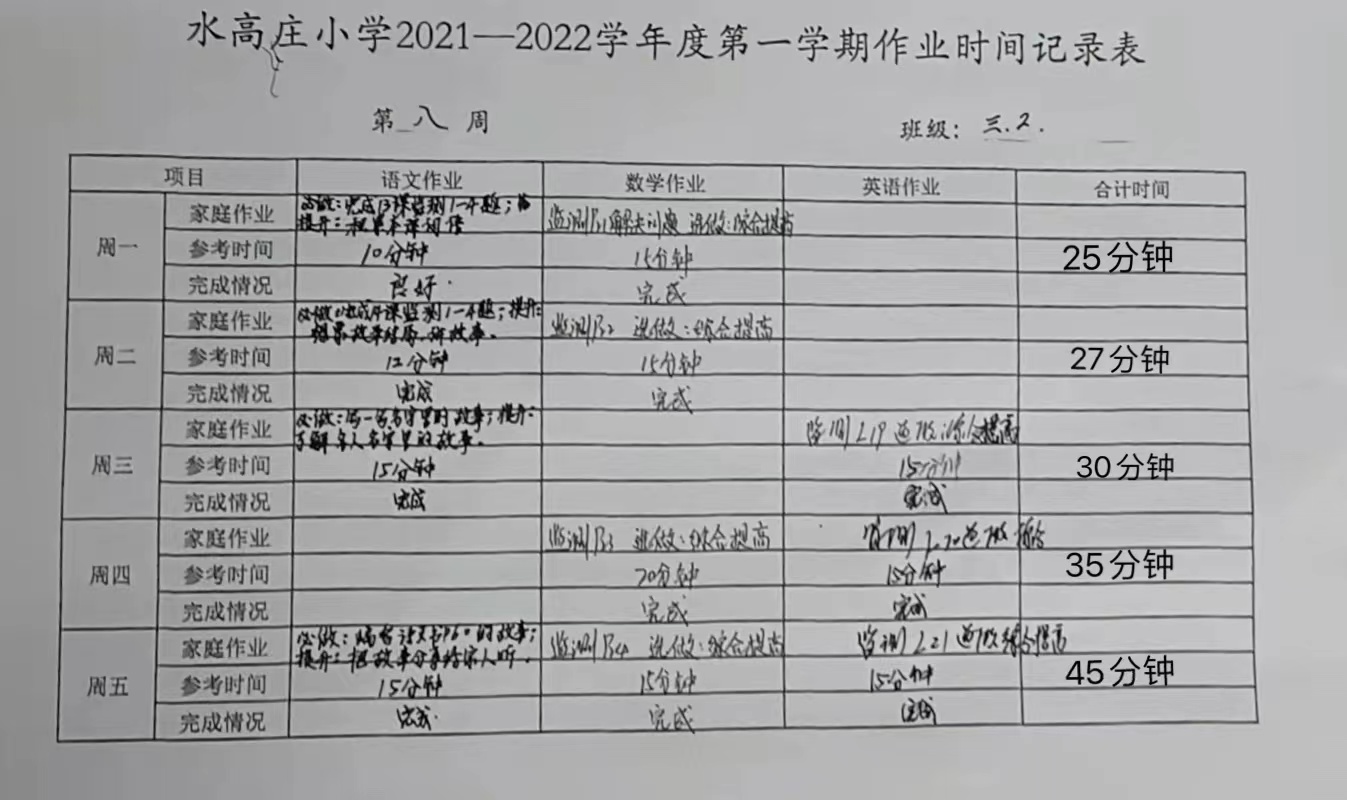 水高庄小学2021—2022学年度第一学期作业时间记录表
第 八 周 班级：三.2.
项目 语文作业 数学作业 英语作业 合计时间
周一
家庭作业 必做：完成13课监测1-4题； 监测 解决问题 选做：综合提高
提升：
参考时间 10分钟 15分钟 25分钟
完成情况 良好. 完成
周二
家庭作业 必做：完成 课监测1-4题；提升： 监测 选做：综合提高
故事结局，讲故事。
参考时间 12分钟 15分钟 27分钟
完成情况 完成 完成
周三
家庭作业 必做：写一写名字里的故事；提升： 监测L19 选做：综合提高
了解名人名字里的故事。
参考时间 15分钟 15分钟 30分钟
完成情况 完成 完成
周四
家庭作业 监测 选做：综合提高 监测L20选做 综合
参考时间 20分钟 15分钟 35分钟
完成情况 完成 完成
周五
家庭作业 必做： 的故事； 监测 选做：综合提高 监测L21选做综合提高
提升：把故事分享给家人听。
参考时间 15分钟 15分钟 15分钟 45分钟
完成情况 完成. 完成 完成